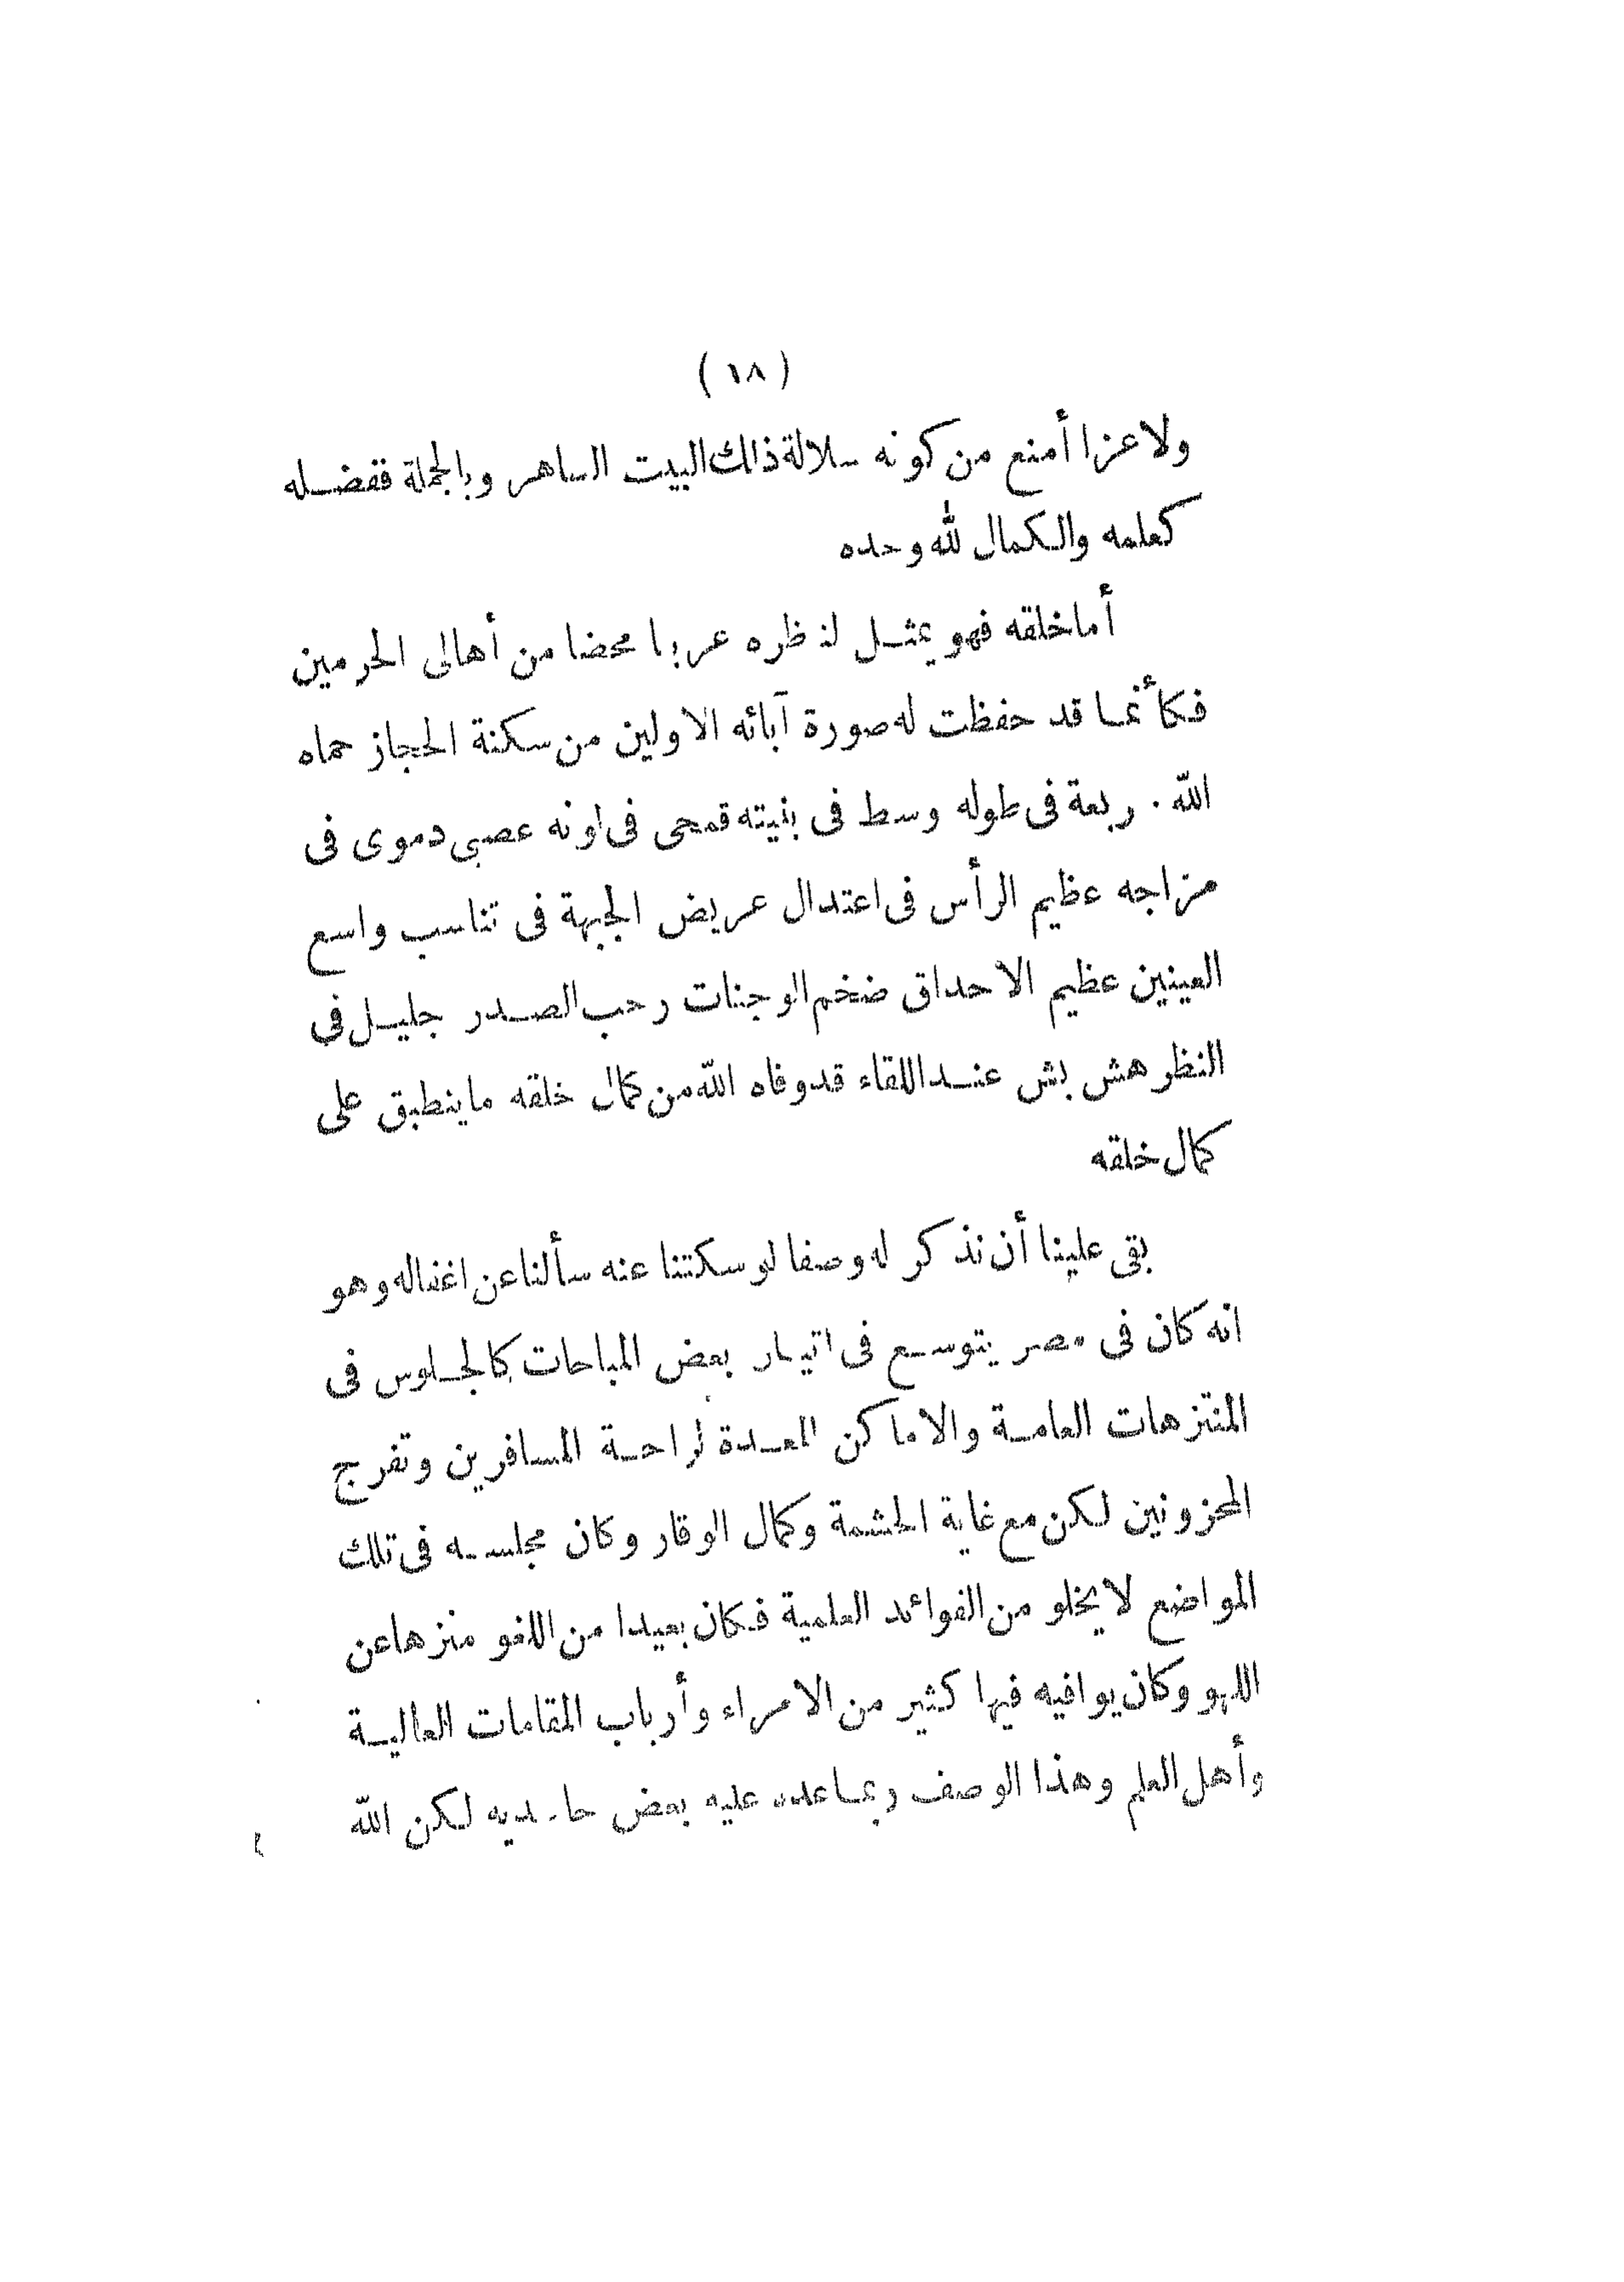 ( ١٨ )
ولا عزا أمنع من كونه سلالة ذلك البيت الطاهر وبالجملة ففضله
كعلمه والكمال لله وحده
أما خلقه فهو يمثل لناظره عربيا محضا من أهالى الحرمين
فكأنما قد حفظت له صورة آبائه الاولين من سكنة الحجاز حماه
الله . ربعة فى طوله وسط فى بنيته قمحى فى لونه عصبى دموى فى
مزاجه عظيم الرأس فى اعتدال عريض الجبهة فى تناسب واسع
العينين عظيم الاحداق ضخم الوجنات رحب الصدر جليل فى
النظر هش بش عند اللقاء قد وفاه الله من كمال خلقه ما ينطبق على
كمال خلقه
بقى علينا أن نذكر له وصفا لو سكتنا عنه سألنا عن اغفاله وهو
انه كان فى مصر يتوسع فى اتيان بعض المباحات كالجلوس فى
المنتزهات العامة والاماكن المعدة لراحة المسافرين وتفرج
المحزونين لكن مع غاية الحشمة وكمال الوقار وكان مجلسه فى تلك
المواضع لا يخلو من الفوائد العلمية فكان بعيدا من اللغو منزها عن
اللهو وكان يوافيه فيها كثير من الامراء وأرباب المقامات العالية
وأهل العلم وهذا الوصف ربما عده عليه بعض حاسديه لكن الله